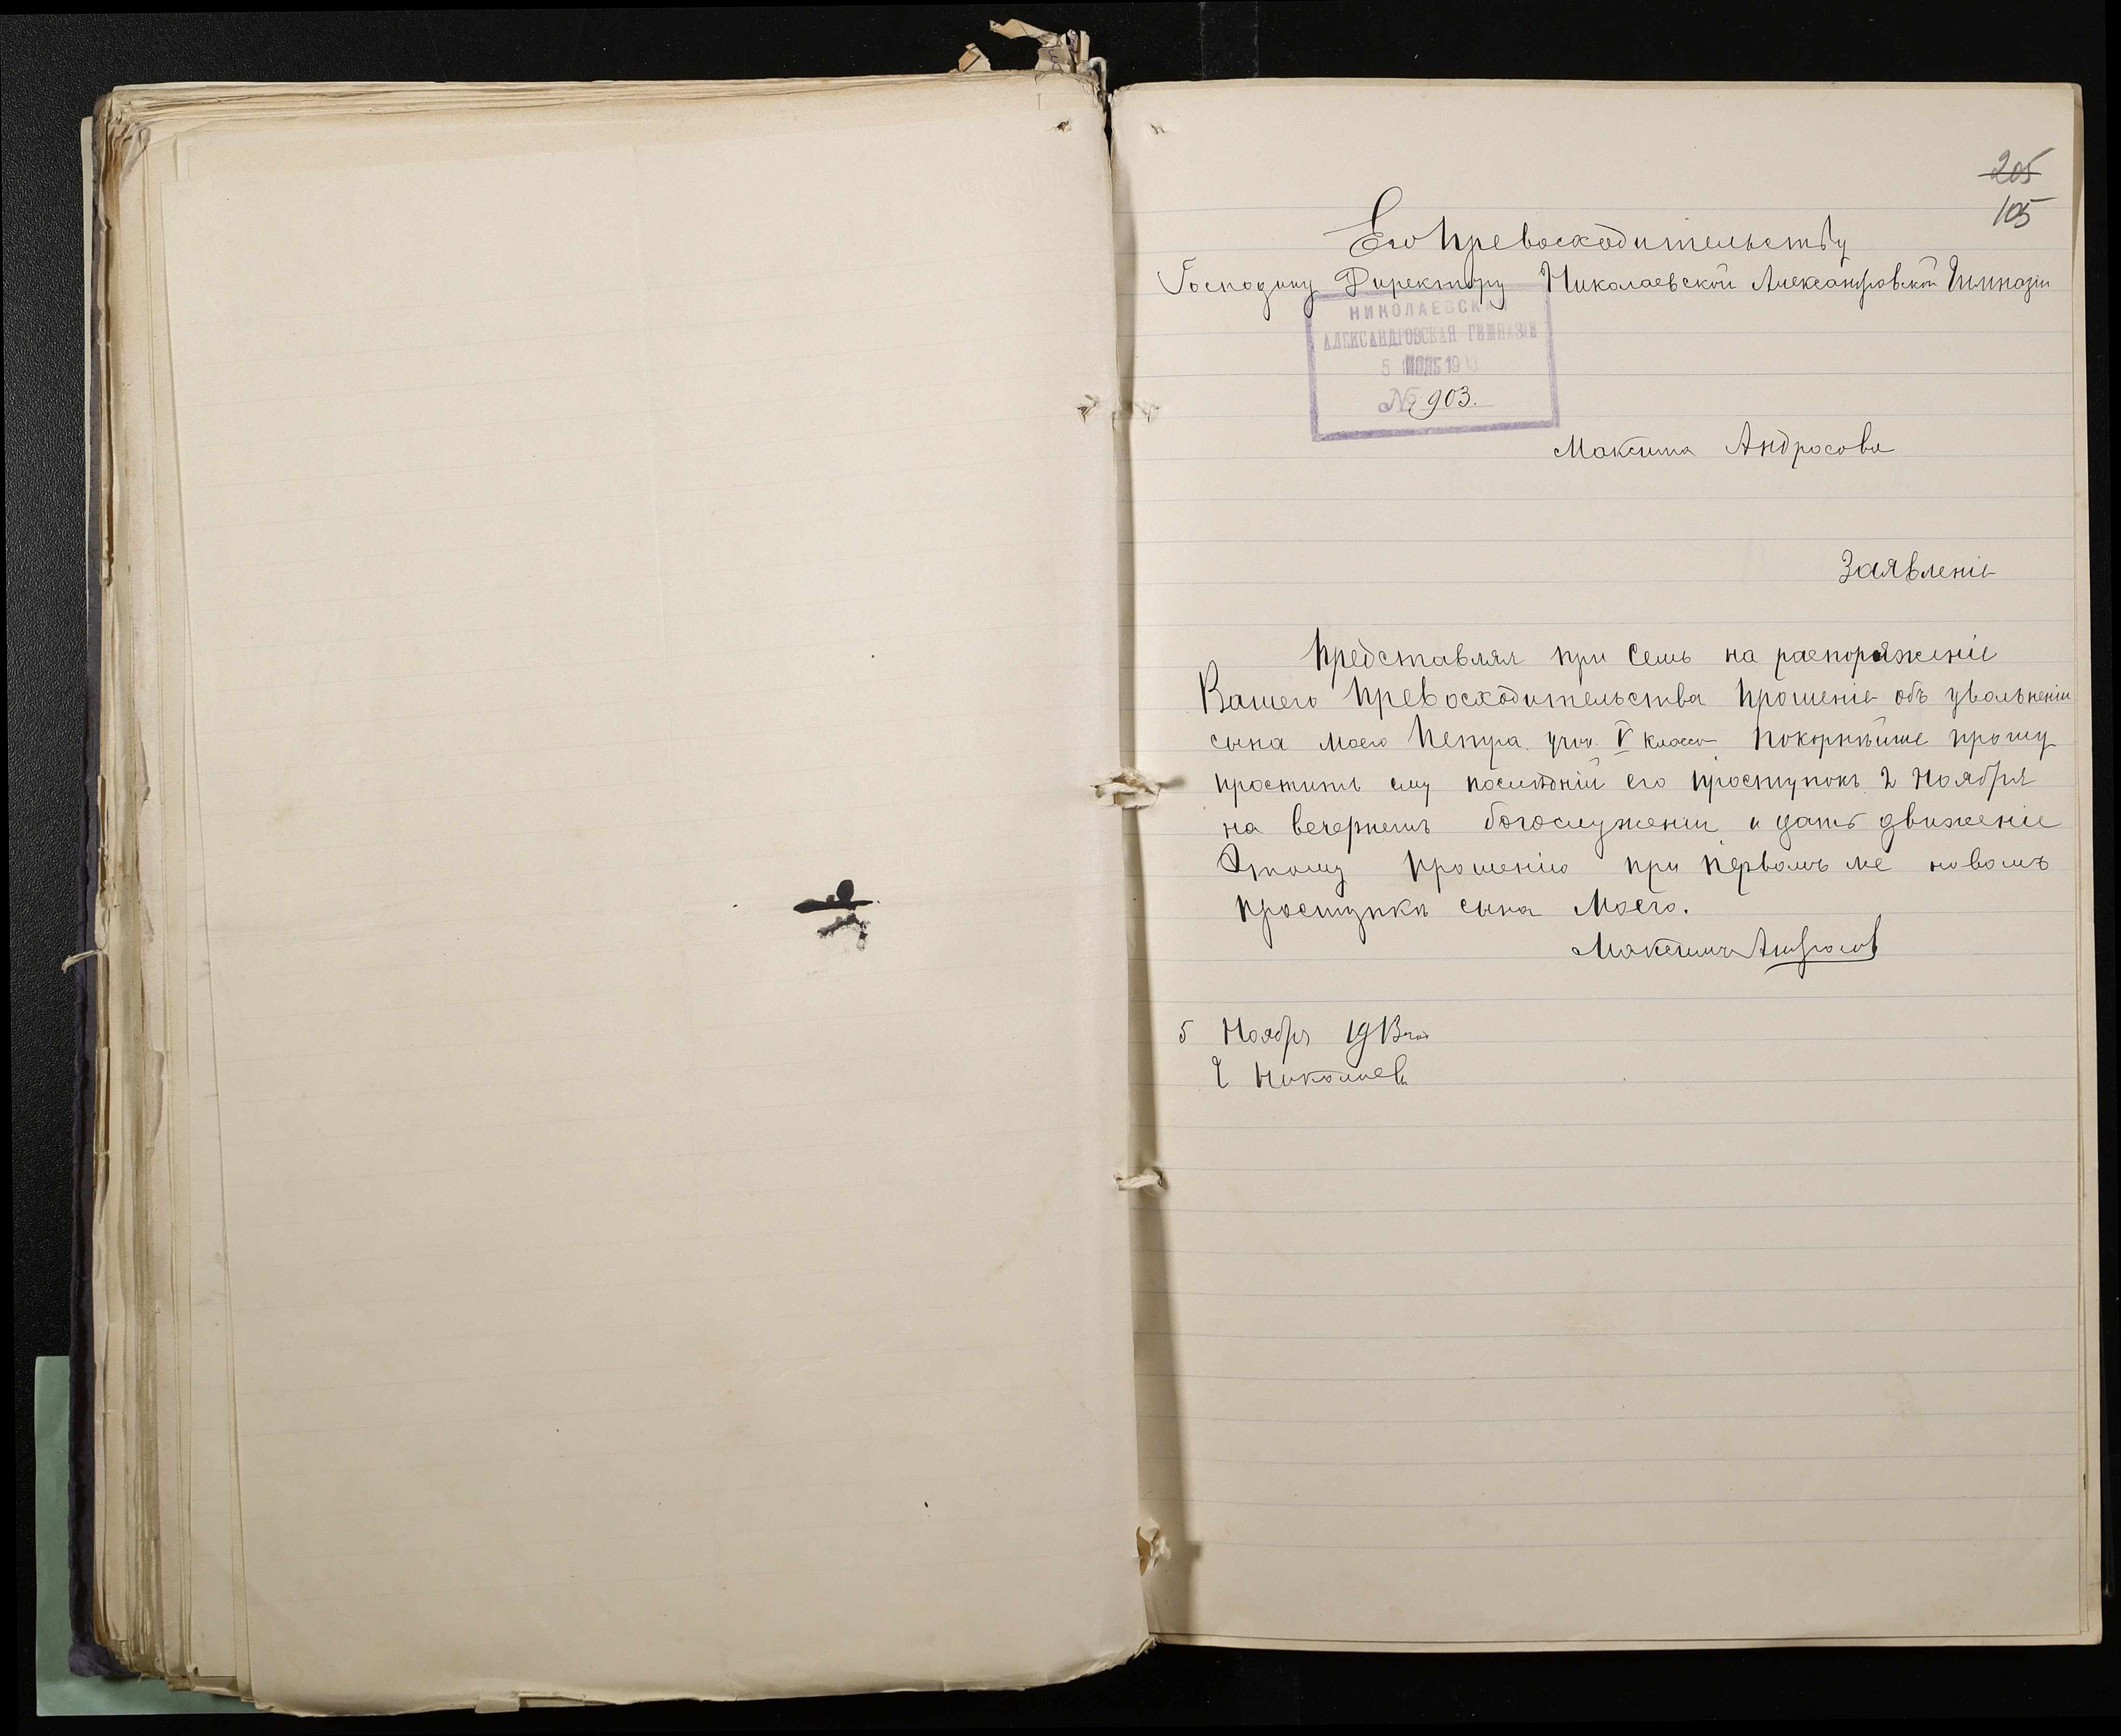 205
105
Его Превосходительству
Господину Директору Николаевской Александровской Гимназіи
НИКОЛАЕВСКАЯ
АЛЕКСАНДРОВСКАЯ ГИМНАЗІЯ
5 НОЯБ 1913
№ 903.
Максима Андросова
Заявленіе
Представляя при семъ на распоряженіе
Вашего Превосходительства Прошеніе объ увольненіи
сына моего Петра учен. V класса Покорнѣйше прошу
простить ему послѣдній его проступокъ 2 Ноября
на вечернемъ богослуженіи и дать движеніе
Этому Прошенію при первомъ же новомъ
проступкѣ сына Моего.
Максимъ Андросов
5 Ноября 1913 год
Г Николаевъ